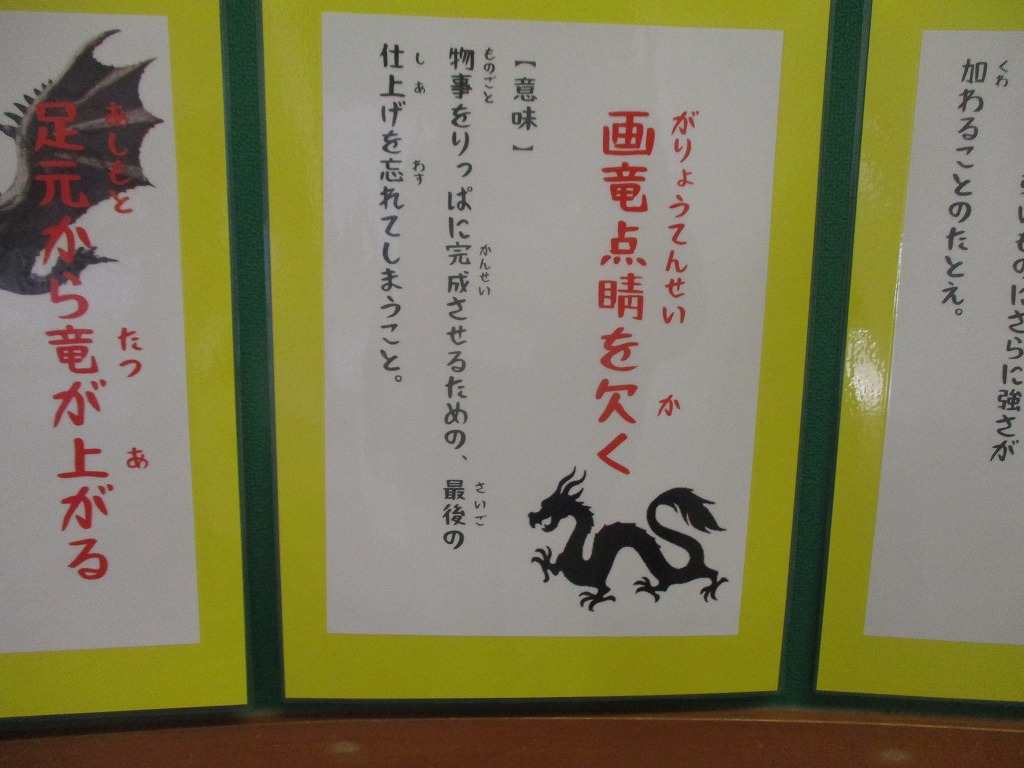 いものにさらに強さが
加わることのたとえ。
くわ
画竜点睛を欠く
がりょうてんせい
か
【意味】
物事をりっぱに完成させるための、最後の
ものごと
かんせい
さいご
仕上げを忘れてしまうこと。
しあ
わす
足元から竜が上がる
あしもと
たつ
あ